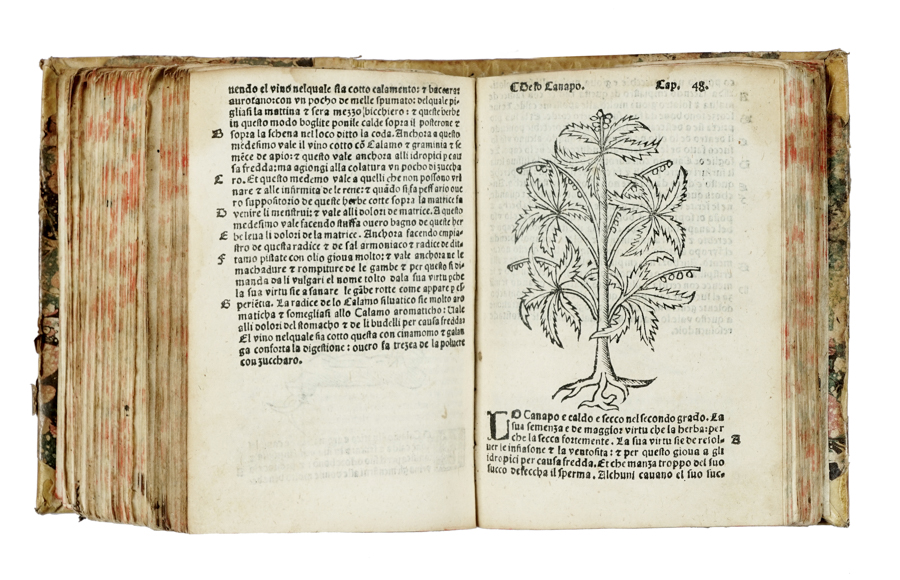 uendo el vino nelquale sia cotto calamento: ⁊ baccaras
aurotano: con vn pocho de melle spumato: delquale pi-
gliasi la mattina ⁊ sera mezzo bicchiero: ⁊ queste herbe
in questo modo boglite ponile calde sopra il posterone ⁊
B sopra la schena nel loco ditto la coda. Anchora a questo
medesimo vale il vino cotto cō Calamo ⁊ graminia ⁊ se
mēce de apio: ⁊ questo vale anchora alli idropici p cau
sa fredda: ma agiongi alla colatura vn pocho di zuccha
C ro. Et questo medemo vale a quelli che non possono vri
nare ⁊ alle infirmita de le rene: ⁊ quādo si fa pessario oue
ro suppositorio de queste herbe cotte sopra la matrice fa
D venire li menstrui: ⁊ vale alli dolori de matrice. A questo
medesimo vale facendo stuffa ouero bagno de queste her
E be leua li dolori de la matrice. Anchora facendo empia-
stro de questa radice ⁊ de sal armoniaco ⁊ radice de dit-
F tamo pistate con olio gioua molto: ⁊ vale anchora ne le
machadure ⁊ rompiture de le gambe ⁊ per questo si di-
manda da li vulgari el nome tolto dala sua virtu pche
la sua virtu sie a sanare le gābe rotte come appare p es-
G periētia. La radice de lo Calamo siluatico sie molto aro
maticha ⁊ somegliasi allo Calamo aromaticho: Uale
alli dolori del stomacho ⁊ de li budelli per causa fredda:
El vino nelquale sia cotto questa con cinamomo ⁊ galan
ga conforta la digestione: ouero fa trezea de la poluere
con zuccharo.
C De lo Canapo. Cap. 48.
LO Canapo e caldo e secco nel secondo grado. La
sua semenza e de maggior virtu che la herba: per
che la secca fortemente. La sua virtu sie de resol- A
uer le infiasone ⁊ la ventosita: ⁊ per questo gioua a gli
idropici per causa fredda. Et che manza troppo del suo
succo desseccha il sperma. Alchuni cauano el suo suc-